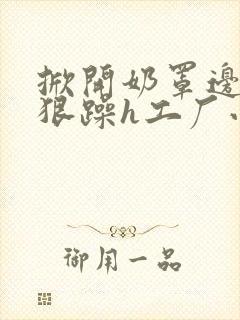 掀開奶罩邊
狠躁h工厂
御用一品